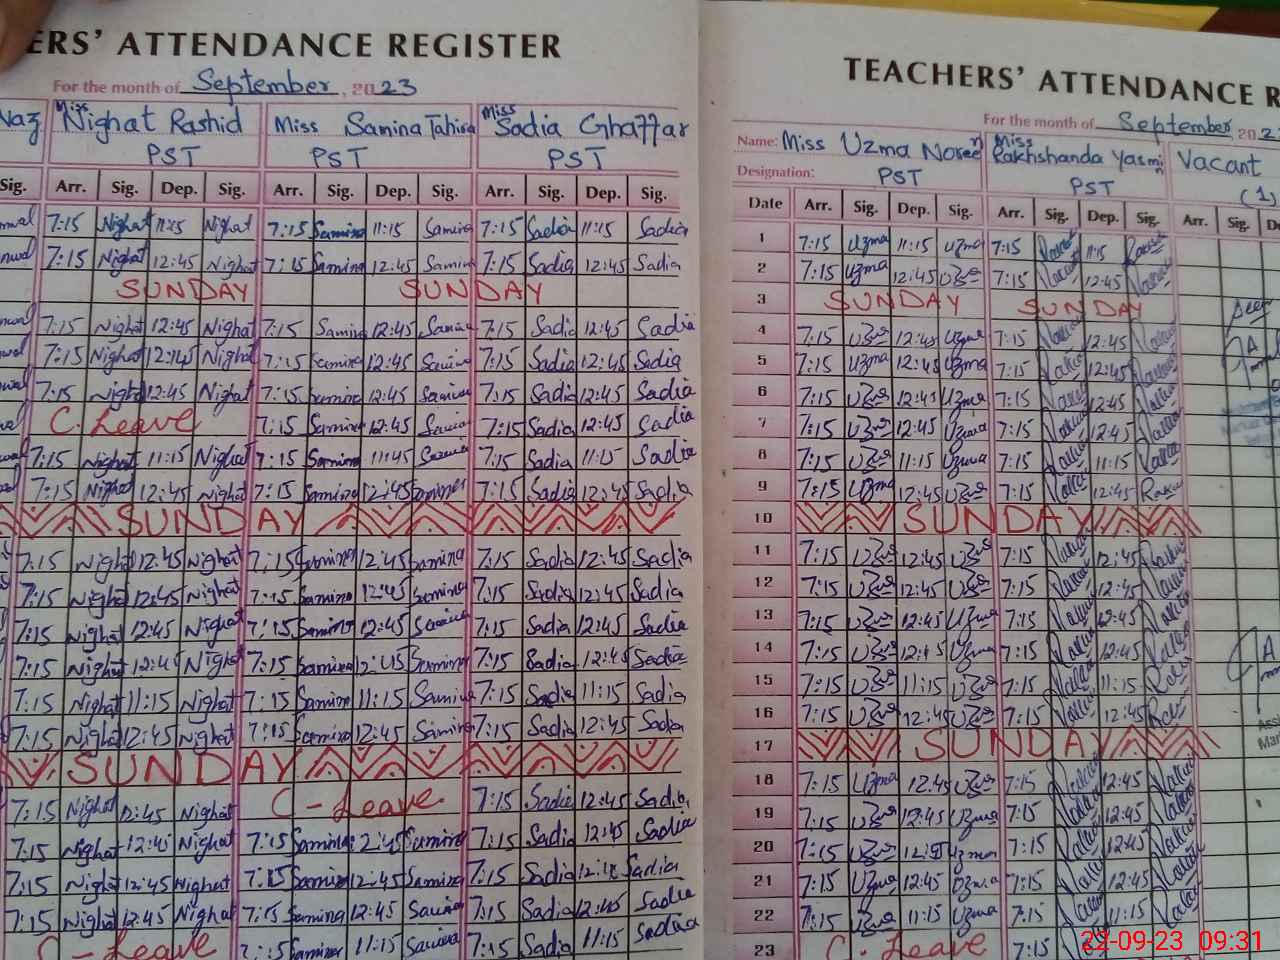 ERS' ATTENDANCE REGISTER
For the month of September, 2023
Naz Miss Nighat Rashid Miss Samina Tahira Miss Sadia Ghaffar
PST PST PST
Sig. Arr. Sig. Dep. Sig. Arr. Sig. Dep. Sig. Arr. Sig. Dep. Sig.
7:15 Nighat 11:15 Nighat 7:15 Samina 11:15 Samina 7:15 Sadia 11:15 Sadia
7:15 Nighat 12:45 Nighat 7:15 Samina 12:45 Samina 7:15 Sadia 12:45 Sadia
SUNDAY SUNDAY
7:15 Nighat 12:45 Nighat 7:15 Samina 12:45 Samina 7:15 Sadia 12:45 Sadia
7:15 Nighat 12:45 Nighat 7:15 Samina 12:45 Samina 7:15 Sadia 12:45 Sadia
7:15 Nighat 12:45 Nighat 7:15 Samina 12:45 Samina 7:15 Sadia 12:45 Sadia
C. Leave 7:15 Samina 12:45 Samina 7:15 Sadia 12:45 Sadia
7:15 Nighat 11:15 Nighat 7:15 Samina 11:45 Samina 7:15 Sadia 11:15 Sadia
7:15 Nighat 12:45 Nighat 7:15 Samina 12:45 Samina 7:15 Sadia 12:45 Sadia
SUNDAY
7:15 Nighat 12:45 Nighat 7:15 Samina 12:45 Samina 7:15 Sadia 12:45 Sadia
7:15 Nighat 12:45 Nighat 7:15 Samina 12:45 Samina 7:15 Sadia 12:45 Sadia
7:15 Nighat 12:45 Nighat 7:15 Samina 12:45 Samina 7:15 Sadia 12:45 Sadia
7:15 Nighat 12:45 Nighat 7:15 Samina 12:45 Samina 7:15 Sadia 12:45 Sadia
7:15 Nighat 11:15 Nighat 7:15 Samina 11:15 Samina 7:15 Sadia 11:15 Sadia
7:15 Nighat 12:45 Nighat 7:15 Samina 12:45 Samina 7:15 Sadia 12:45 Sadia
SUNDAY
7:15 Nighat 12:45 Nighat C-Leave 7:15 Sadia 12:45 Sadia
7:15 Nighat 12:45 Nighat 7:15 Samina 12:45 Samina 7:15 Sadia 12:45 Sadia
7:15 Nighat 12:45 Nighat 7:15 Samina 12:45 Samina 7:15 Sadia 12:45 Sadia
7:15 Nighat 12:45 Nighat 7:15 Samina 12:45 Samina 7:15 Sadia 12:45 Sadia
C-Leave 7:15 Samina 11:15 Samina 7:15 Sadia 11:15 Sadia
TEACHERS' ATTENDANCE R
For the month of September, 202
Name: Miss Uzma Noreen Miss Rakhshanda Yasmin Vacant
Designation: PST PST (1)
Date Arr. Sig. Dep. Sig. Arr. Sig. Dep. Sig. Arr. Sig. De
1 7:15 Uzma 11:15 Uzma 7:15 11:15
2 7:15 Uzma 12:45 Uzma 7:15 12:45
3 SUNDAY SUNDAY
4 7:15 Uzma 12:45 Uzma 7:15 12:45
5 7:15 Uzma 12:45 Uzma 7:15 12:45
6 7:15 Uzma 12:45 Uzma 7:15 12:45
7 7:15 Uzma 12:45 Uzma 7:15 12:45
8 7:15 Uzma 11:15 Uzma 7:15 11:15
9 7:15 Uzma 12:45 Uzma 7:15 12:45
10 SUNDAY
11 7:15 Uzma 12:45 Uzma 7:15 12:45
12 7:15 Uzma 12:45 Uzma 7:15 12:45
13 7:15 Uzma 12:45 Uzma 7:15 12:45
14 7:15 Uzma 12:45 Uzma 7:15 12:45
15 7:15 Uzma 11:15 Uzma 7:15 11:15
16 7:15 Uzma 12:45 Uzma 7:15 12:45
17 SUNDAY
18 7:15 Uzma 12:45 Uzma 7:15 12:45
19 7:15 Uzma 12:45 Uzma 7:15 12:45
20 7:15 Uzma Uzma 7:15 12:45
21 7:15 Uzma 12:45 Uzma 7:15 12:45
22 7:15 Uzma 11:15 Uzma 7:15 11:15
23 C-Leave 7:15
22-09-23 09:31